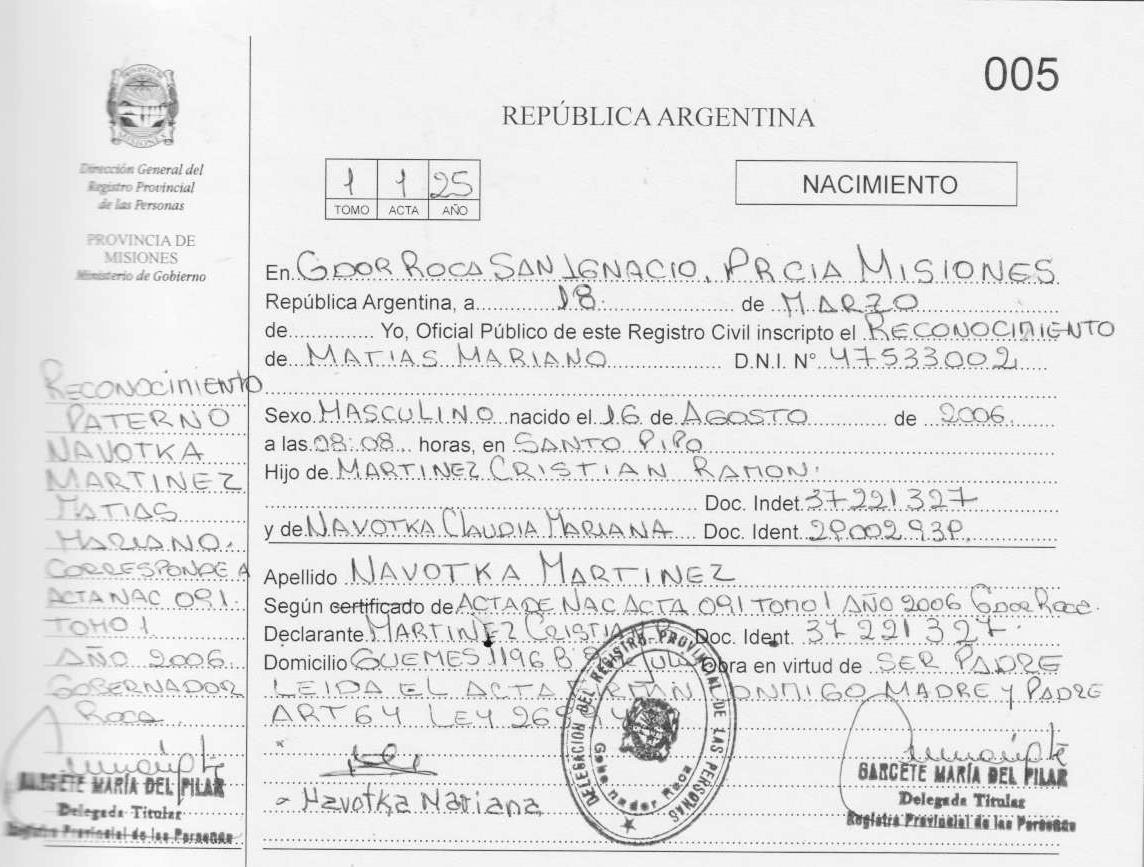 005
REPÚBLICA ARGENTINA
1 1 25
TOMO ACTA AÑO
NACIMIENTO
PROVINCIA DE MISIONES
Dirección General del
Registro Provincial
de las Personas
PROVINCIA DE
MISIONES
Ministerio de Gobierno
RECONOCIMIENTO
PATERNO
NAVOTKA
MARTINEZ
MATIAS
MARIANO.
CORRESPONDE A
ACTA NAC 091.
TOMO 1.
AÑO 2006.
GOBERNADOR
ROCA.
GARCETE MARÍA DEL PILAR
Delegada Titular
Registro Provincial de las Personas
En GDOR ROCA SAN IGNACIO, PRCIA MISIONES
República Argentina, a 18. de MARZO
de Yo, Oficial Público de este Registro Civil inscripto el RECONOCIMIENTO
de MATIAS MARIANO D.N.I. N° 47533002
Sexo MASCULINO nacido el 16 de AGOSTO de 2006.
a las 08:08 horas, en SANTO PIPO
Hijo de MARTINEZ CRISTIAN RAMON.
Doc. Indet. 37221327
y de NAVOTKA CLAUDIA MARIANA Doc. Ident.
Apellido NAVOTKA MARTINEZ
Según certificado de ACTA DE NAC ACTA 091 TOMO 1 AÑO 2006 Gdor Roca.
Declarante MARTINEZ CRISTIAN Doc. Ident. 37221327.
Domicilio GUEMES 1196 Obra en virtud de SER PADRE
LEIDA EL ACTA FIRMAN CONMIGO MADRE Y PADRE
ART 64 LEY
DELEGACION DEL REGISTRO PROVINCIAL DE LAS PERSONAS
Gobernador Roca
Navotka Mariana
GARCETE MARÍA DEL PILAR
Delegada Titular
Registro Provincial de las Personas